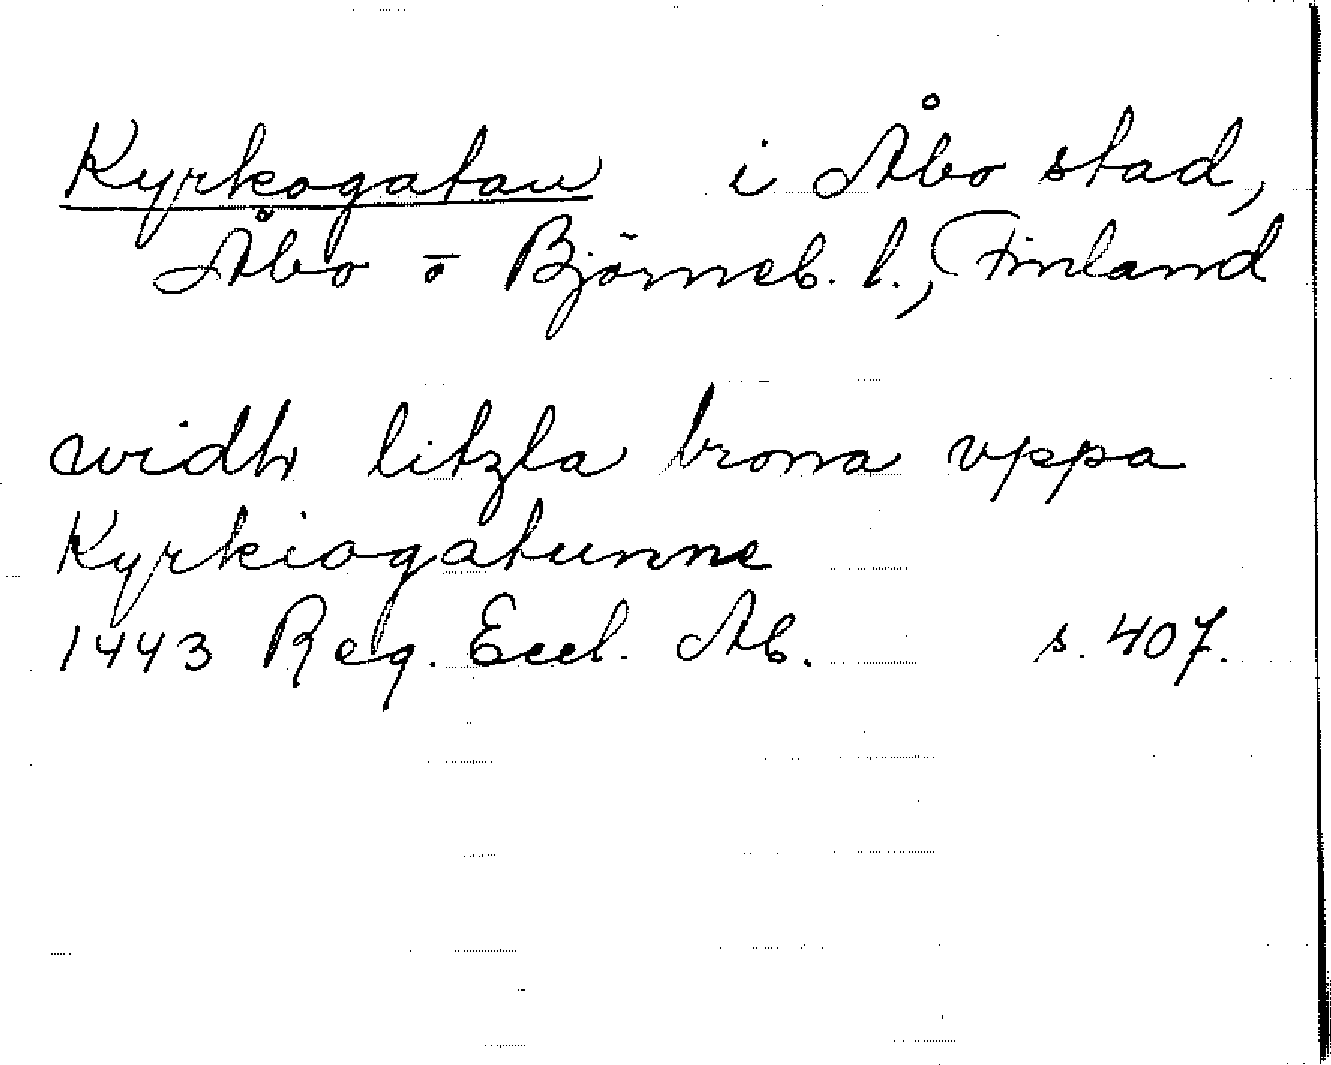 Kyrkogatan i Åbo stad,
Åbo o Björneb. l., Finland
widh litzla brona vppa
Kyrkiogatunne
1443 Reg. Eccl. Ab. s. 407.